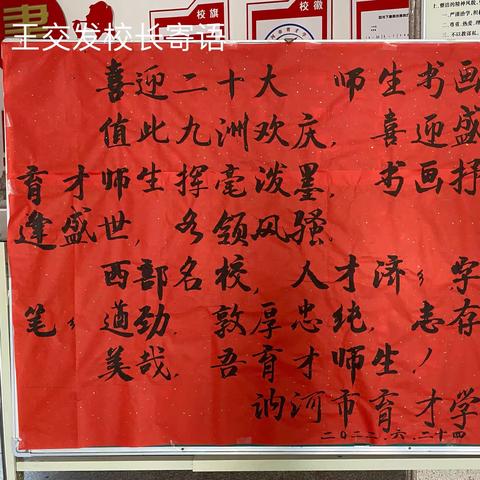 王交发校长寄语
校旗
校徽
喜迎二十大 师生书画
值此九洲欢庆，喜迎盛
育才师生挥毫泼墨，书画抒
逢盛世，各领风骚.
西部名校，人才济々字
笔々遒劲.敦厚忠纯，志存
美哉.吾育才师生！
讷河市育才学
二〇二二.六.二十四